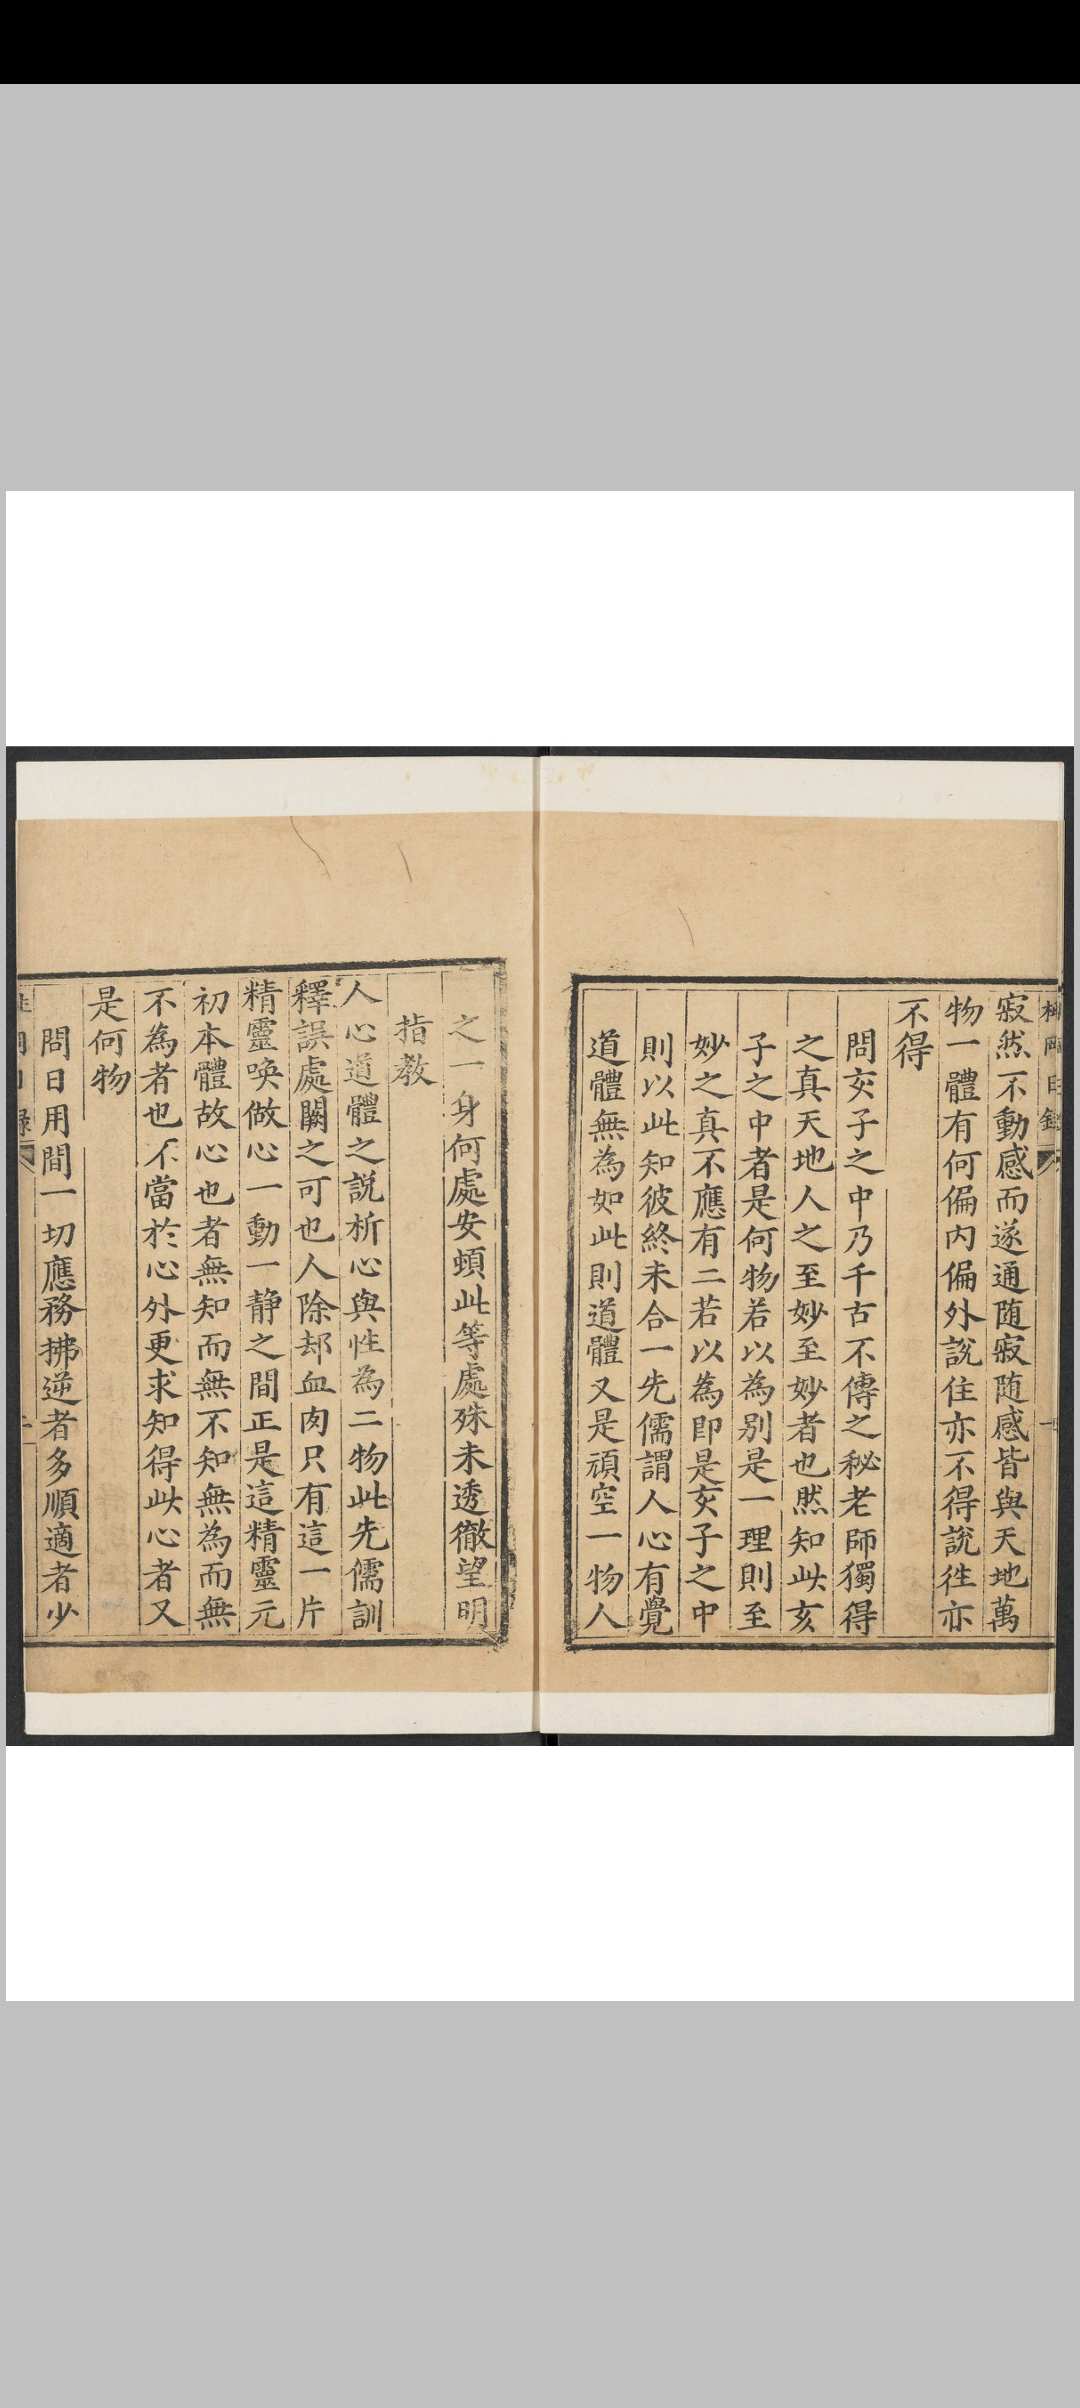 寂然不動感而遂通随寂随感皆與天地萬
物一體有何偏内偏外說住亦不得說徃亦
不得
問亥子之中乃千古不傳之秘老師獨得
之真天地人之至妙至妙者也然知此亥
子之中者是何物若以為别是一理則至
妙之真不應有二若以為即是亥子之中
則以此知彼終未合一先儒謂人心有覺
道體無為如此則道體又是頑空一物人
之一身何處安頓此等處殊未透徹望明
指教
人心道體之説析心與性為二物此先儒訓
釋誤處闕之可也人除却血肉只有這一片
精靈喚做心一動一静之間正是這精靈元
初本體故心也者無知而無不知無為而無
不為者也不當於心外更求知得此心者又
是何物
問日用間一切應務拂逆者多順適者少